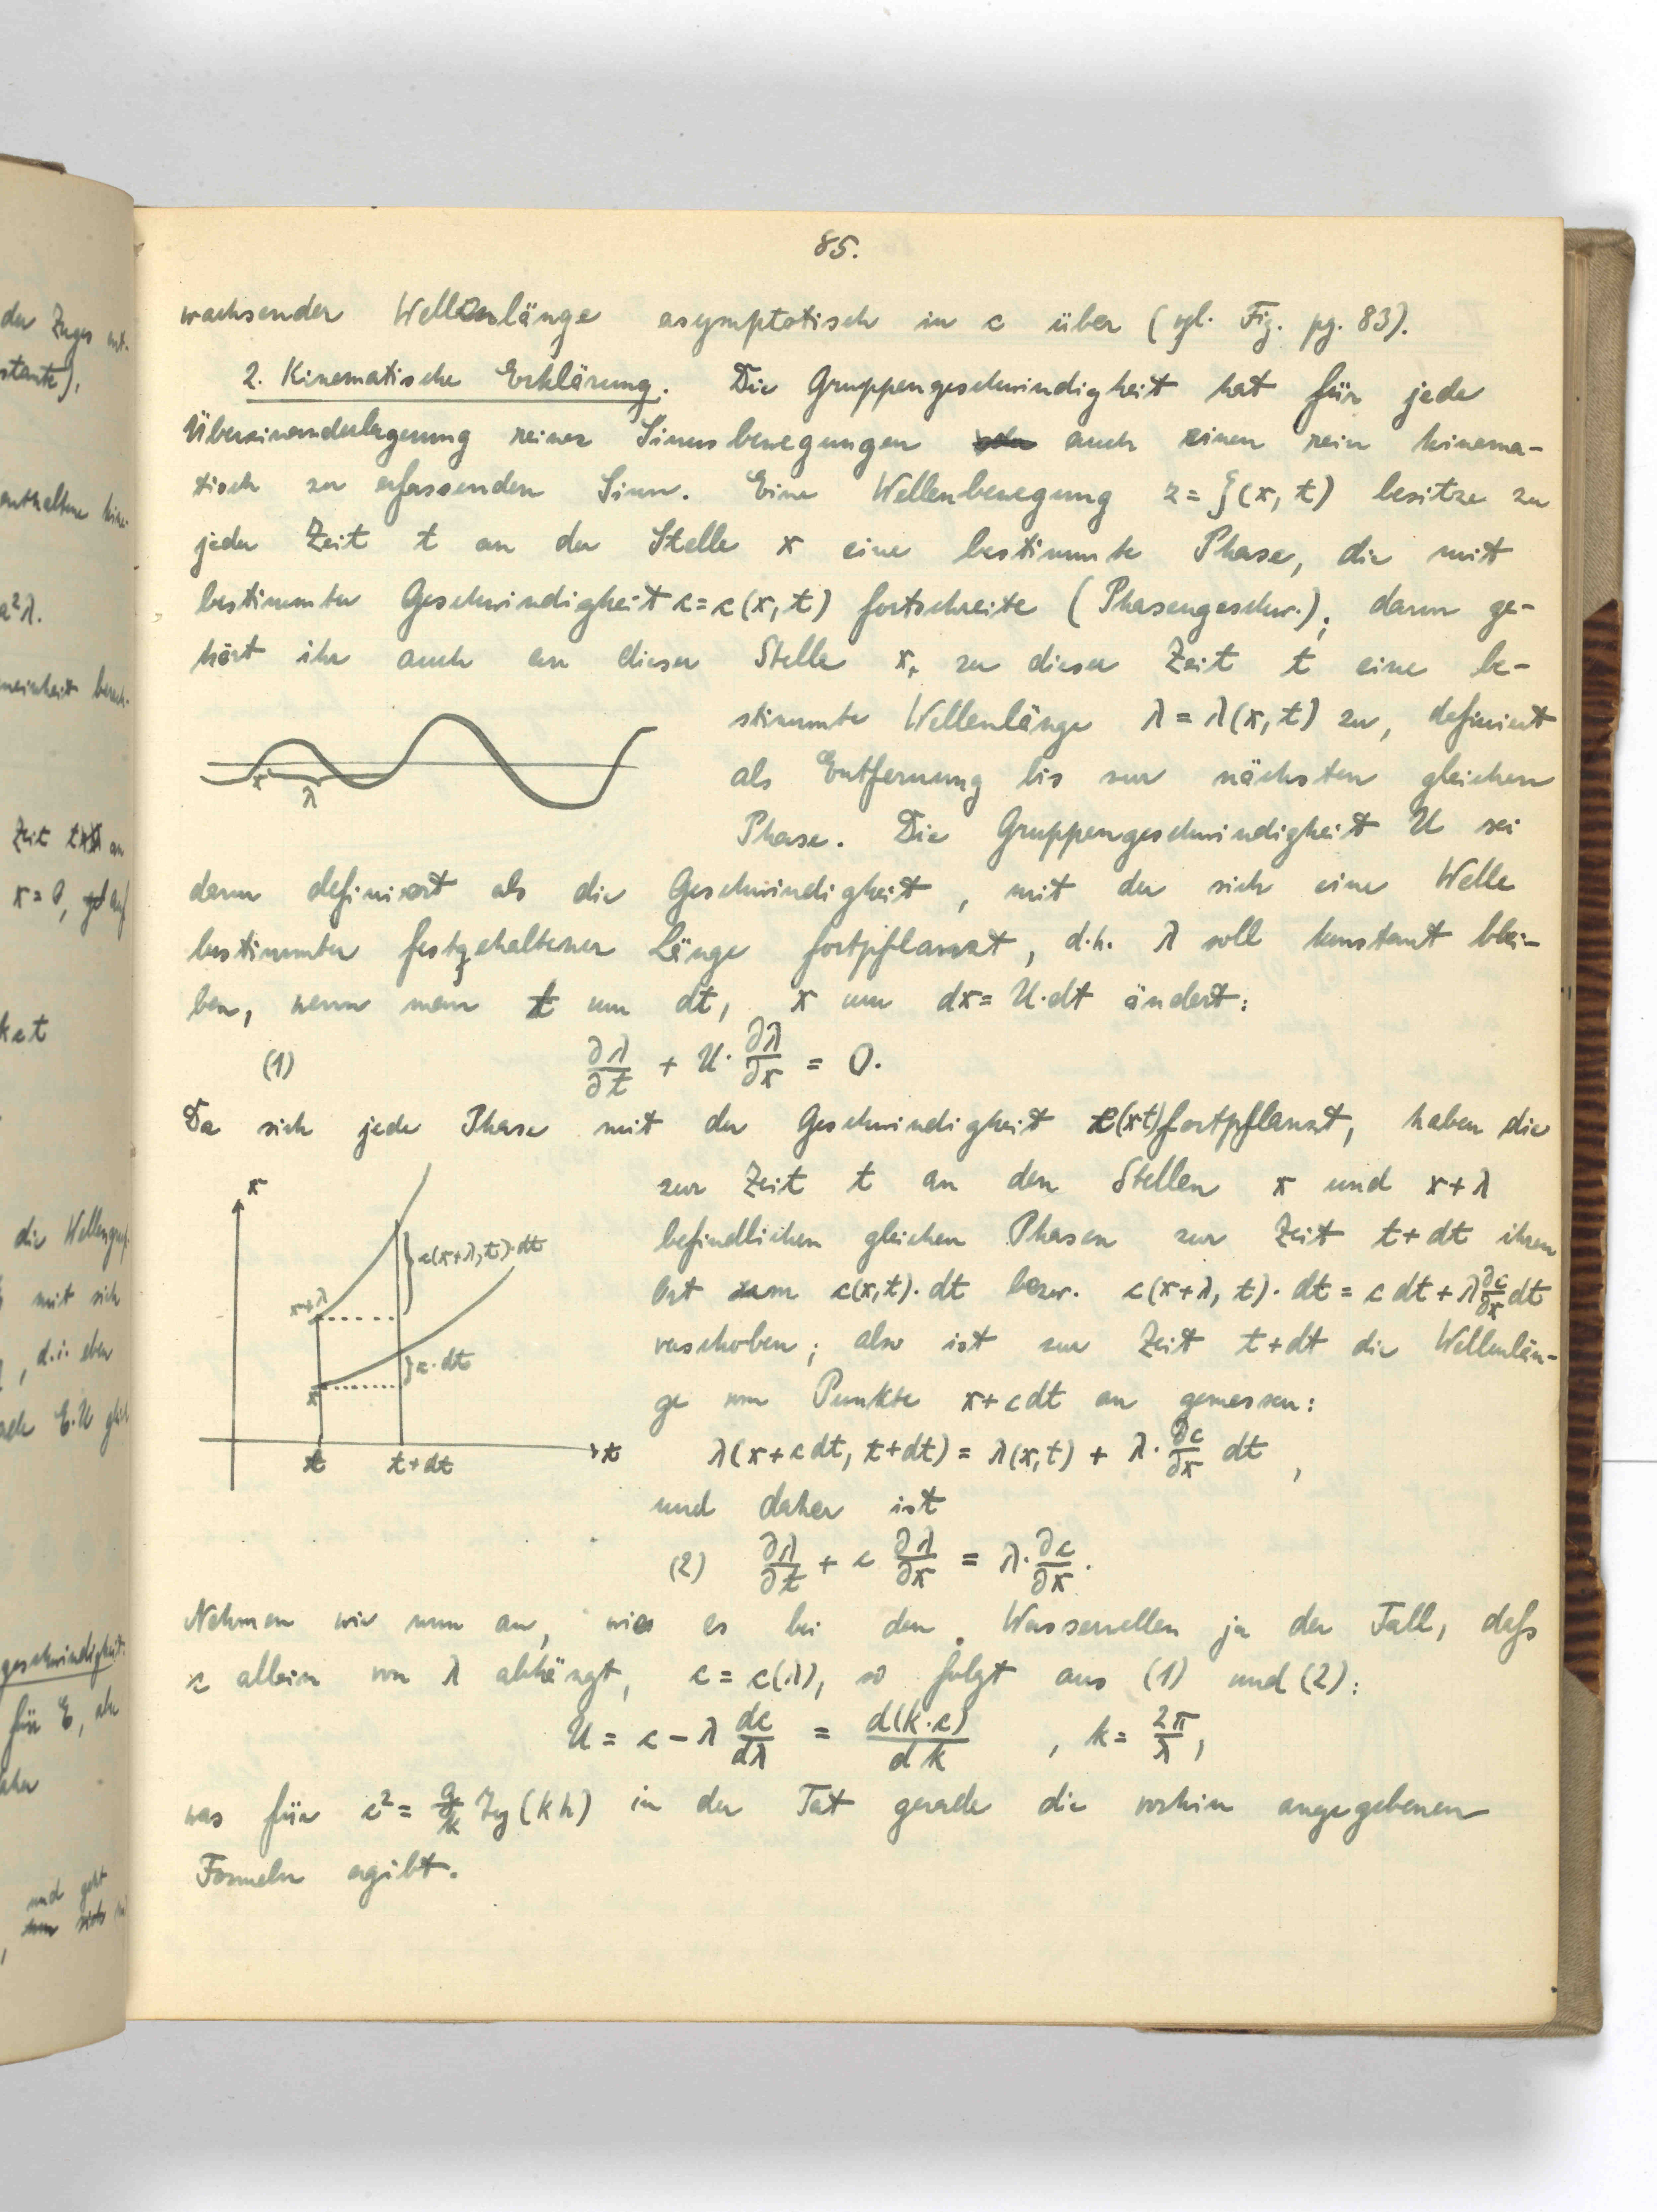 85.
wachsender Wellenlänge asymptotisch in c über (vgl. Fig. pg. 83).
2. Kinematische Erklärung. Die Gruppengeschwindigkeit hat für jede
Übereinanderlagerung reiner Sinusbewegungen auch einen rein kinema-
tisch zu erfassenden Sinn. Eine Wellenbewegung z = ζ(x, t) besitze zu
jeder Zeit t an der Stelle x eine bestimmte Phase, die mit
bestimmter Geschwindigkeit c = c(x, t) fortschreite (Phasengeschw.); dann ge-
hört ihr auch an dieser Stelle x, zu dieser Zeit t eine be-
stimmte Wellenlänge λ = λ(x, t) zu, definiert
als Entfernung bis zur nächsten gleichen
Phase. Die Gruppengeschwindigkeit U sei
x
λ
dann definiert als die Geschwindigkeit, mit der sich eine Welle
bestimmter festgehaltener Länge fortpflanzt, d.h. λ soll konstant blei-
ben, wenn man t um dt, x um dx = U·dt ändert:
(1) ∂λ/∂t + U·∂λ/∂x = 0.
Da sich jede Phase mit der Geschwindigkeit c(xt) fortpflanzt, haben die
zur Zeit t an den Stellen x und x+λ
befindlichen gleichen Phasen zur Zeit t+dt ihren
Ort um c(x,t)·dt bezw. c(x+λ, t)·dt = c dt + λ ∂c/∂x dt
verschoben; also ist zur Zeit t+dt die Wellenlän-
ge vom Punkte x+cdt an gemessen:
λ(x+cdt, t+dt) = λ(x,t) + λ·∂c/∂x dt,
und daher ist
(2) ∂λ/∂t + c ∂λ/∂x = λ·∂c/∂x.
x
c(x+λ,t)·dt
x+λ
c·dt
x
t
t+dt
t
Nehmen wir nun an, wie es bei den Wasserwellen ja der Fall, daß
c allein von λ abhängt, c = c(λ), so folgt aus (1) und (2):
U = c − λ dc/dλ = d(k·c)/dk , k = 2π/λ,
was für c² = g/k Tg(kh) in der Tat gerade die vorhin angegebenen
Formeln ergibt.
der Zuges
enthaltene
a²λ.
Zeit
x = 0,
die Wellengrup-
mit sich
, d.i. eben
E.U
geschwindigkeit.
für E,
und geht